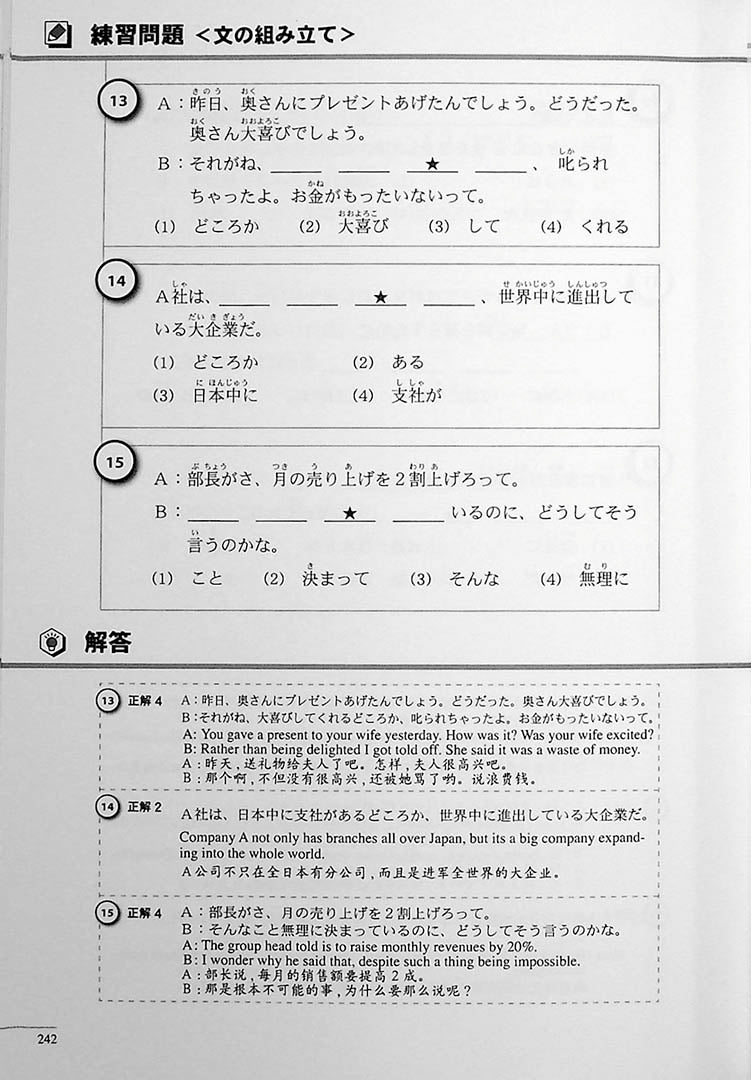 練習問題 <文の組み立て>
13
A：昨日、奥さんにプレゼントあげたんでしょう。どうだった。
奥さん大喜びでしょう。
B：それがね、＿＿＿ ＿＿＿ ★ ＿＿＿、叱られ
ちゃったよ。お金がもったいないって。
(1) どころか (2) 大喜び (3) して (4) くれる
14
A社は、＿＿＿ ＿＿＿ ★ ＿＿＿、世界中に進出して
いる大企業だ。
(1) どころか (2) ある
(3) 日本中に (4) 支社が
15
A：部長がさ、月の売り上げを２割上げろって。
B：＿＿＿ ＿＿＿ ★ ＿＿＿いるのに、どうしてそう
言うのかな。
(1) こと (2) 決まって (3) そんな (4) 無理に
解答
13 正解 4 A：昨日、奥さんにプレゼントあげたんでしょう。どうだった。奥さん大喜びでしょう。
B：それがね、大喜びしてくれるどころか、叱られちゃったよ。お金がもったいないって。
A: You gave a present to your wife yesterday. How was it? Was your wife excited?
B: Rather than being delighted I got told off. She said it was a waste of money.
A：昨天，送礼物给夫人了吧。怎样，夫人很高兴吧。
B：那个啊，不但没有很高兴，还被她骂了哟。说浪费钱。
14 正解 2 A社は、日本中に支社があるどころか、世界中に進出している大企業だ。
Company A not only has branches all over Japan, but its a big company expand-
ing into the whole world.
A公司不只在全日本有分公司，而且是进军全世界的大企业。
15 正解 4 A：部長がさ、月の売り上げを２割上げろって。
B：そんなこと無理に決まっているのに、どうしてそう言うのかな。
A: The group head told is to raise monthly revenues by 20%.
B: I wonder why he said that, despite such a thing being impossible.
A：部长说，每月的销售额要提高２成。
B：那是根本不可能的事，为什么要那么说呢？
242